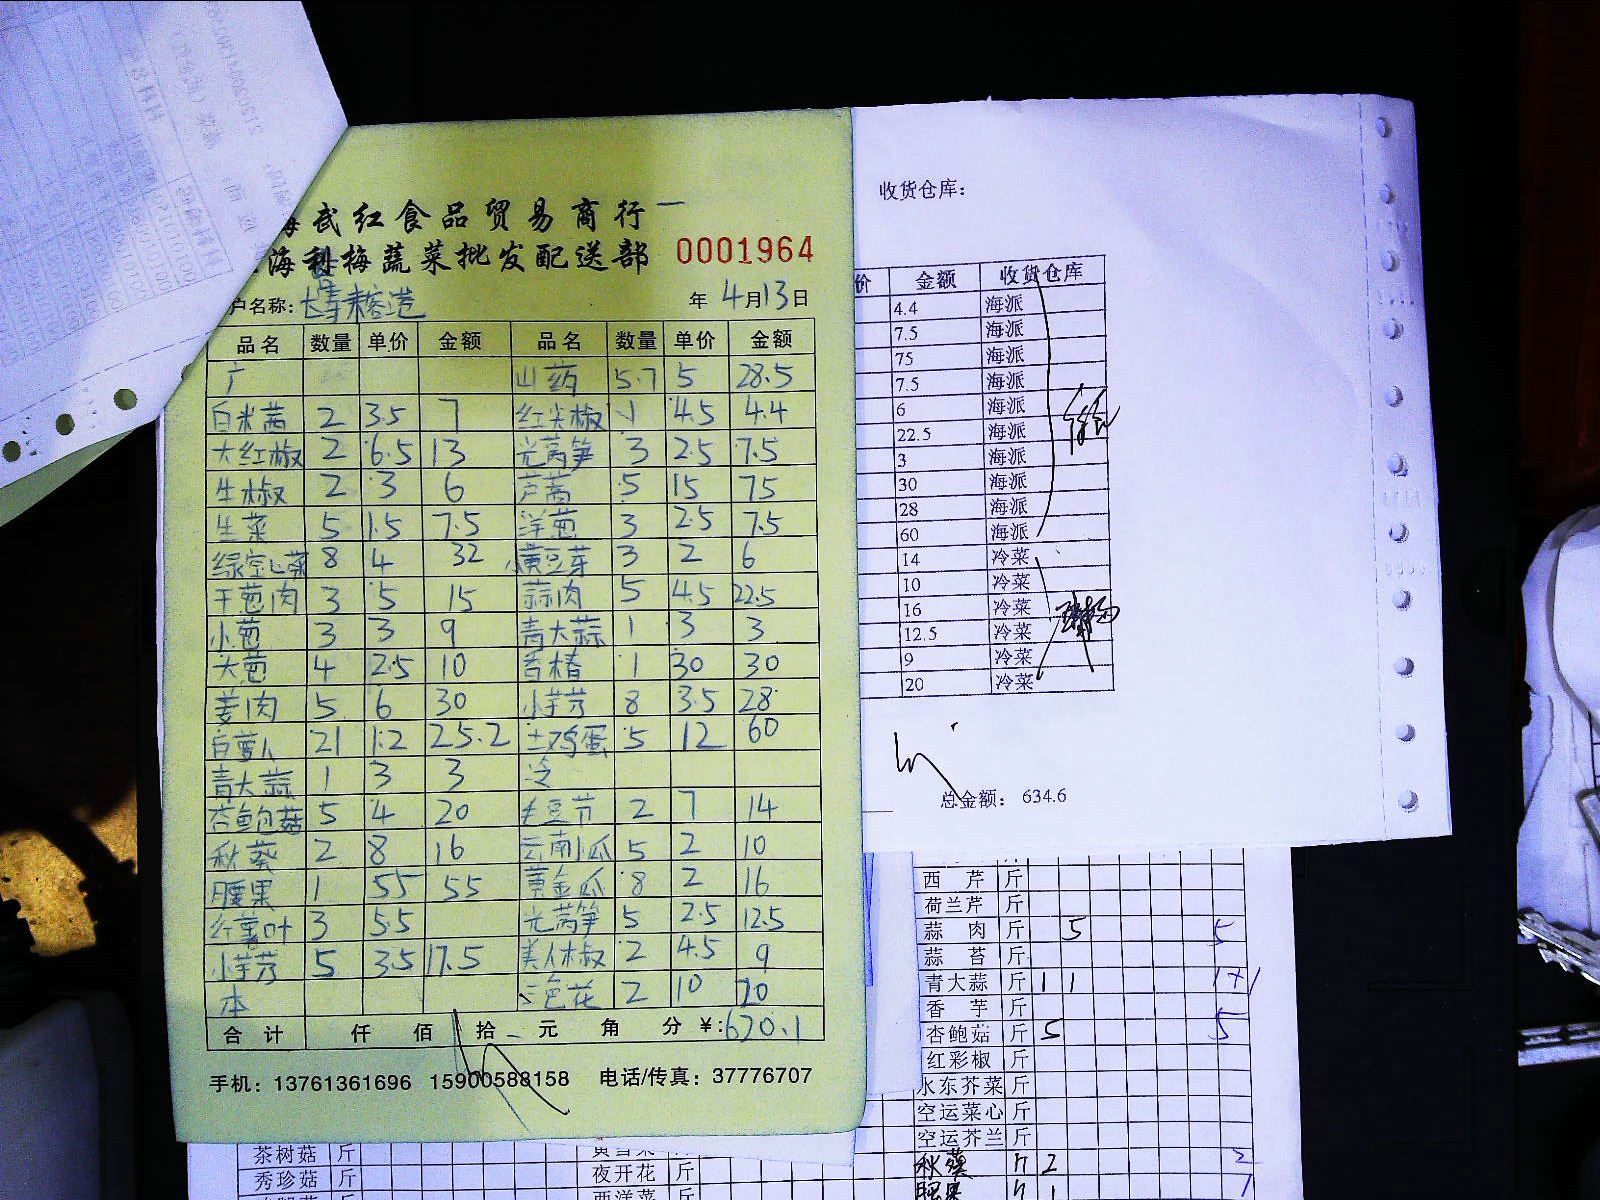 武红食品贸易商行
海利梅蔬菜批发配送部 0001964
户名称: 年 4月13日
品名 数量 单价 金额 品名 数量 单价 金额
广 山药 5.7 5 28.5
白米苋 2 3.5 7 红尖椒 1 4.5 4.4
大红椒 2 6.5 13 光莴笋 3 2.5 7.5
生椒 2 3 6 芦蒿 5 15 75
生菜 5 1.5 7.5 洋葱 3 2.5 7.5
绿空心菜 8 4 32 小黄豆芽 3 2 6
干葱肉 3 5 15 蒜肉 5 4.5 22.5
小葱 3 3 9 青大蒜 1 3 3
大葱 4 2.5 10 香椿 1 30 30
姜肉 5 6 30 小芋艿 8 3.5 28
白萝卜 21 1.2 25.2 土鸡蛋 5 12 60
青大蒜 1 3 3 冷
杏鲍菇 5 4 20 毛豆节 2 7 14
秋葵 2 8 16 云南小瓜 5 2 10
腰果 1 55 55 黄金瓜 8 2 16
红薯叶 3 5.5 光莴笋 5 2.5 12.5
小芋艿 5 3.5 17.5 美人椒 2 4.5 9
本 三色花 2 10 20
合计 仟 佰 拾 元 角 分 ¥:670.1
手机：13761361696 15900588158 电话/传真：37776707
收货仓库：
价 金额 收货仓库
4.4 海派
7.5 海派
75 海派
7.5 海派
6 海派
22.5 海派
3 海派
30 海派
28 海派
60 海派
14 冷菜
10 冷菜
16 冷菜
12.5 冷菜
9 冷菜
20 冷菜
总金额： 634.6
西芹 斤
荷兰芹 斤
蒜肉 斤 5 5
蒜苔 斤
青大蒜 斤 1 1 1+1
香芋 斤
杏鲍菇 斤 5 5
红彩椒 斤
水东芥菜 斤
空运菜心 斤
空运芥兰 斤
秋葵 斤 2 2
腰果 斤 1 1
茶树菇 斤
秀珍菇 斤 夜开花 斤
西洋菜 斤